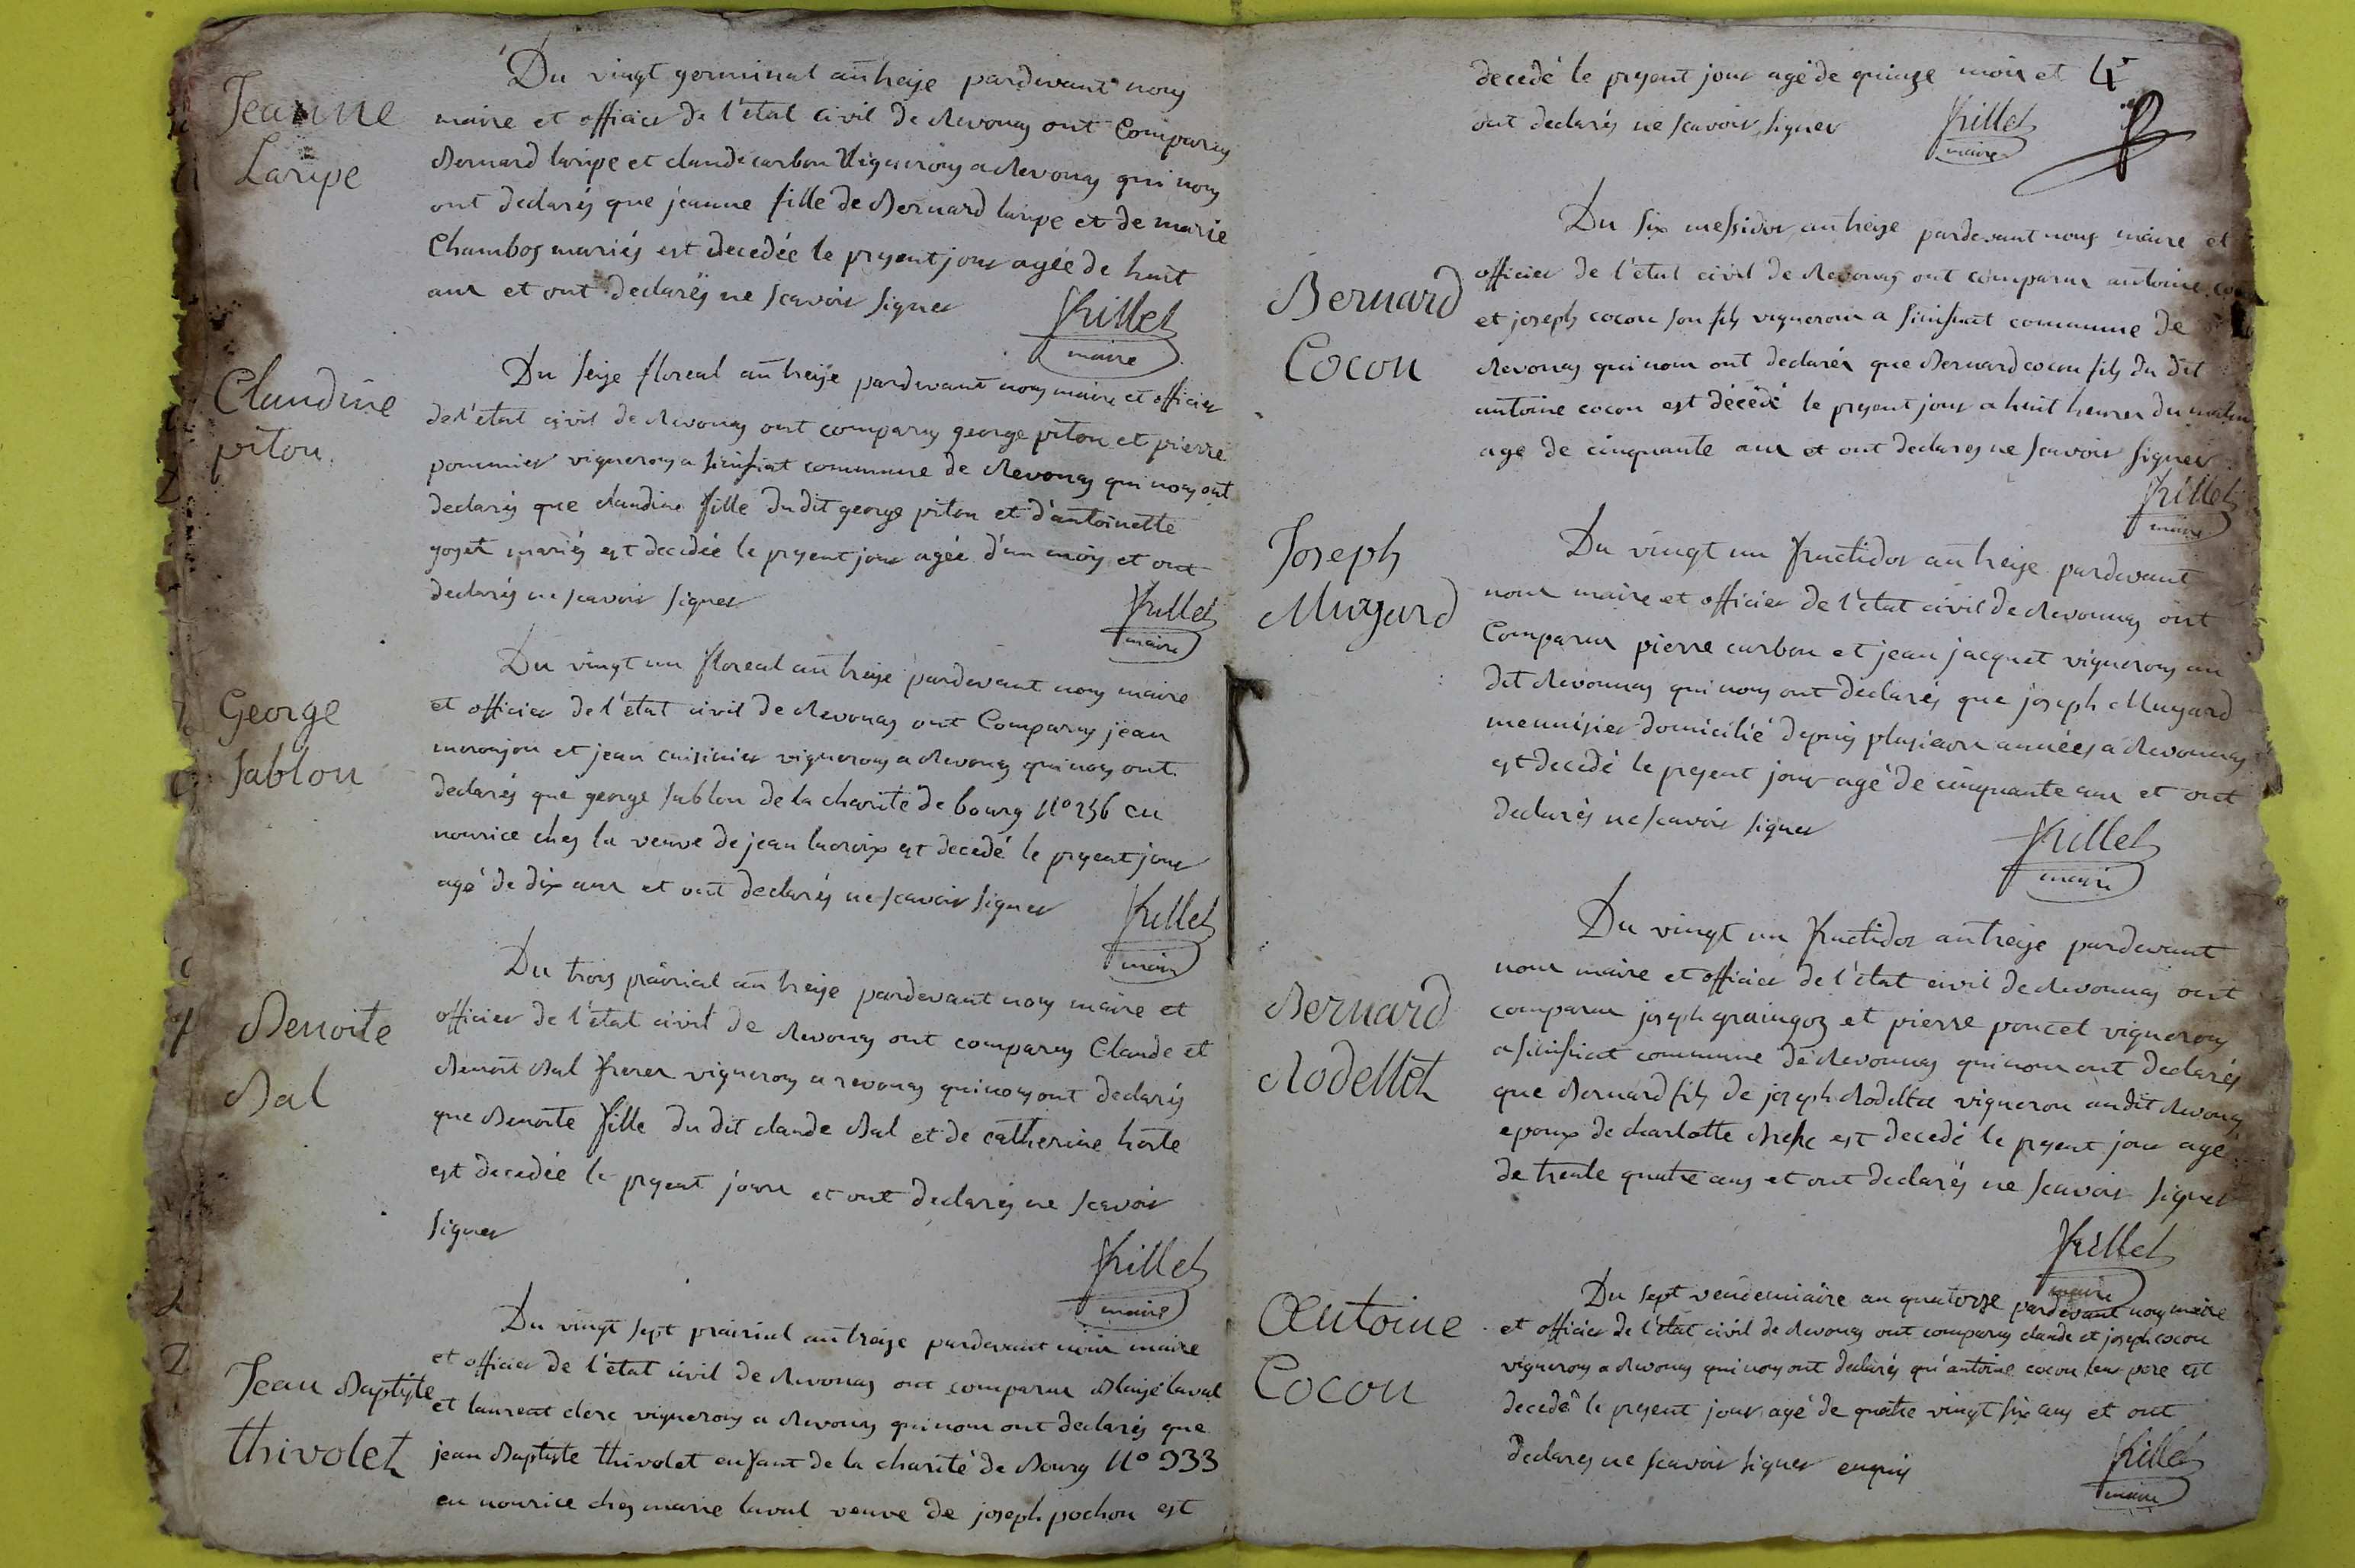 Jeanne
Laripe
Du vingt germinal an treize pardevant nous
maire et officier de l'etat civil de Revonas ont Comparus
Bernard laripe et claude carbon Vignerons a Revonas qui nous
ont declarés que jeanne fille de Bernard laripe et de marie
Chambos mariés est decedée le present jour agée de huit
ans et ont declarés ne scavoir signer
maire
Claudine
piton
Du seize floreal an treize pardevant nous maire et officier
de l'etat civil de Revonas ont comparus george piton et pierre
pommier vignerons a simfiat commune de Revonas qui nous ont
declarés que claudine fille du dit george piton et d'antoinette
goyet mariés est decedée le present jour agée d'un mois et ont
declarés ne scavoir signer
maire
George
Sablon
Du vingt un floreal an treize pardevant nous maire
et officier de l'etat civil de Revonas ont Comparus jean
moronjon et jean cuisinier vignerons a Revonas qui nous ont
declarés que george sablon de la charité de bourg N° 256 en
nourice chez la veuve de jean lacroix est decedé le present jour
agé de dix ans et ont declarés ne scavoir signer
maire
Benoite
Bal
Du trois prairial an treize pardevant nous maire et
officier de l'état civil de Revonas ont comparus Claude et
Benoit Bal freres vignerons a revonas qui nous ont declarés
que Benoite fille du dit claude Bal et de catherine
est decedée le present jour et ont declarés ne scavoir
signer
maire
Jean Baptiste
thivolet
Du vingt sept prairial an treize pardevant nous maire
et officier de l'état civil de Revonas ont comparus Blaise laval
et laurent clerc vignerons a Revonas qui nous ont declarés que
jean Baptiste thivolet enfant de la charité de Bourg N° 933
en nourice chez marie laval veuve de joseph pochon est
decedé le present jour agé de quinze mois et
ont declarés ne scavoir signer
maire
Bernard
Cocon
Du six messidor an treize pardevant nous maire et
officier de l'état civil de Revonas ont comparus antoine
et joseph cocon son fils vignerons a simfiat commune de
Revonas qui nous ont declarés que Bernard cocon fils du dit
antoine cocon est décédé le present jour a huit heures du matin
agé de cinquante ans et ont declarés ne scavoir signer
maire
Joseph
Mugard
Du vingt un fructidor an treize pardevant
nous maire et officier de l'état civil de Revonnas ont
Comparus pierre carbon et jean jacquet vignerons au
dit Revonnas qui nous ont declarés que joseph Mugard
menuisier domicilié depuis plusieurs années a Revonnas
est decedé le present jour agé de cinquante ans et ont
declarés ne scavoir signer
maire
Bernard
Rodellet
Du vingt un fructidor an treize pardevant
nous maire et officier de l'état civil de Revonnas ont
comparus joseph graingoz et pierre poncet vignerons
a simfiat commune de Revonnas qui nous ont declarés
que Bernard fils de joseph Rodellet vigneron au dit Revonas
epoux de charlotte est decedé le present jour agé
de trente quatre ans et ont declarés ne scavoir signer
maire
Antoine
Cocon
Du sept vendemiaire an quatorze pardevant nous maire
et officier de l'état civil de Revonas ont comparus claude et joseph cocon
vignerons a Revonas qui nous ont declarés qu'antoine cocon leur pere est
decedé le present jour agé de quatre vingt six ans et ont
declarés ne scavoir signer enquis
maire